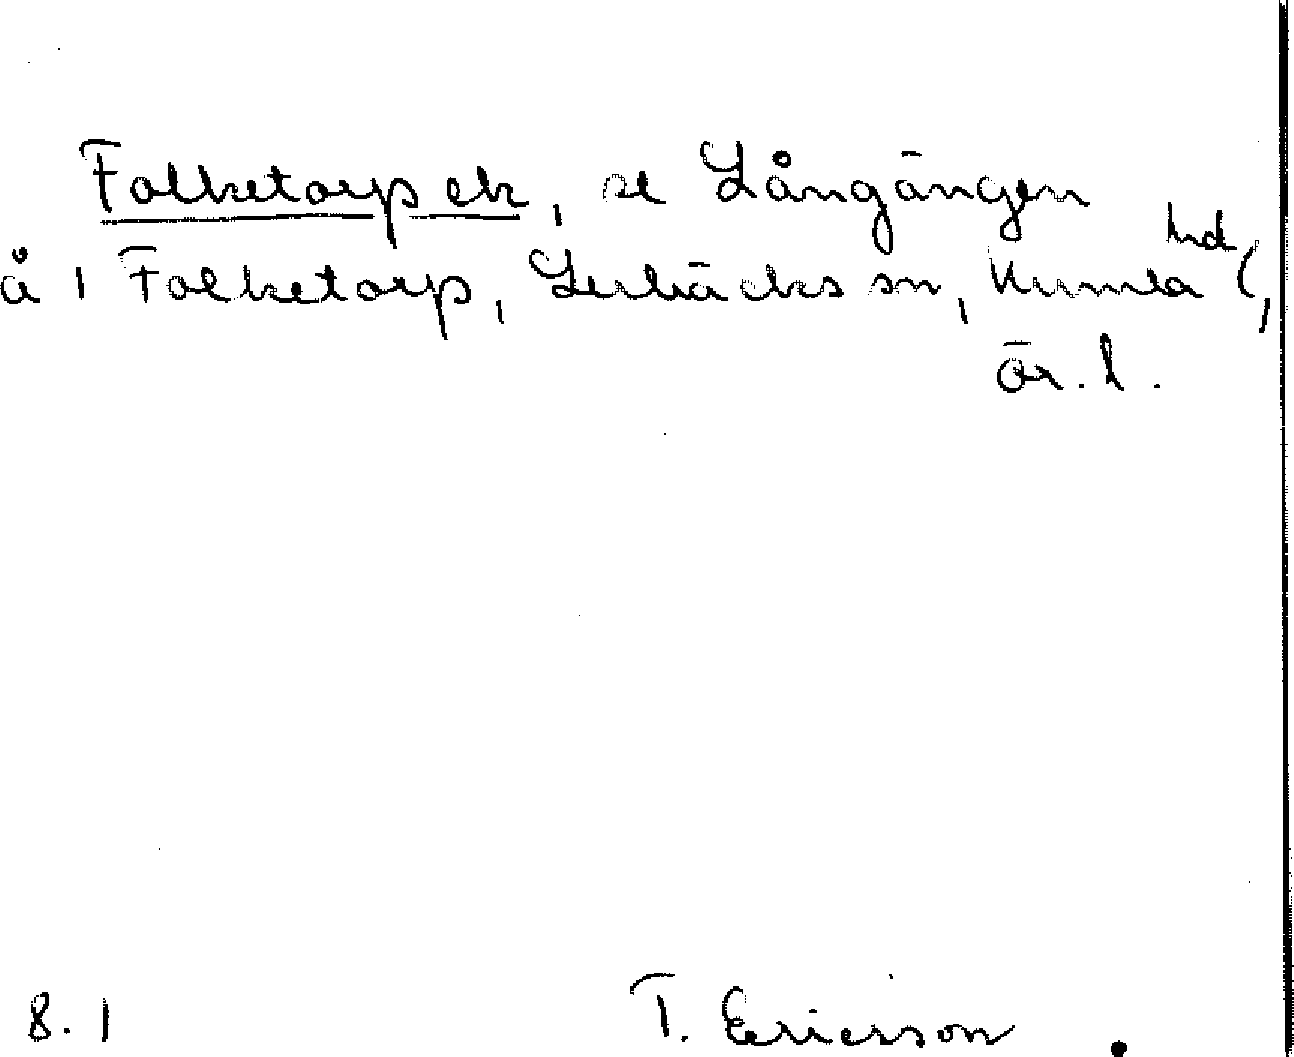 Folketorp ek, se Långängen
å i Folketorp, Lerbäcks sn, Kumla hd,
ör. l.
8.1
T. Ericsson